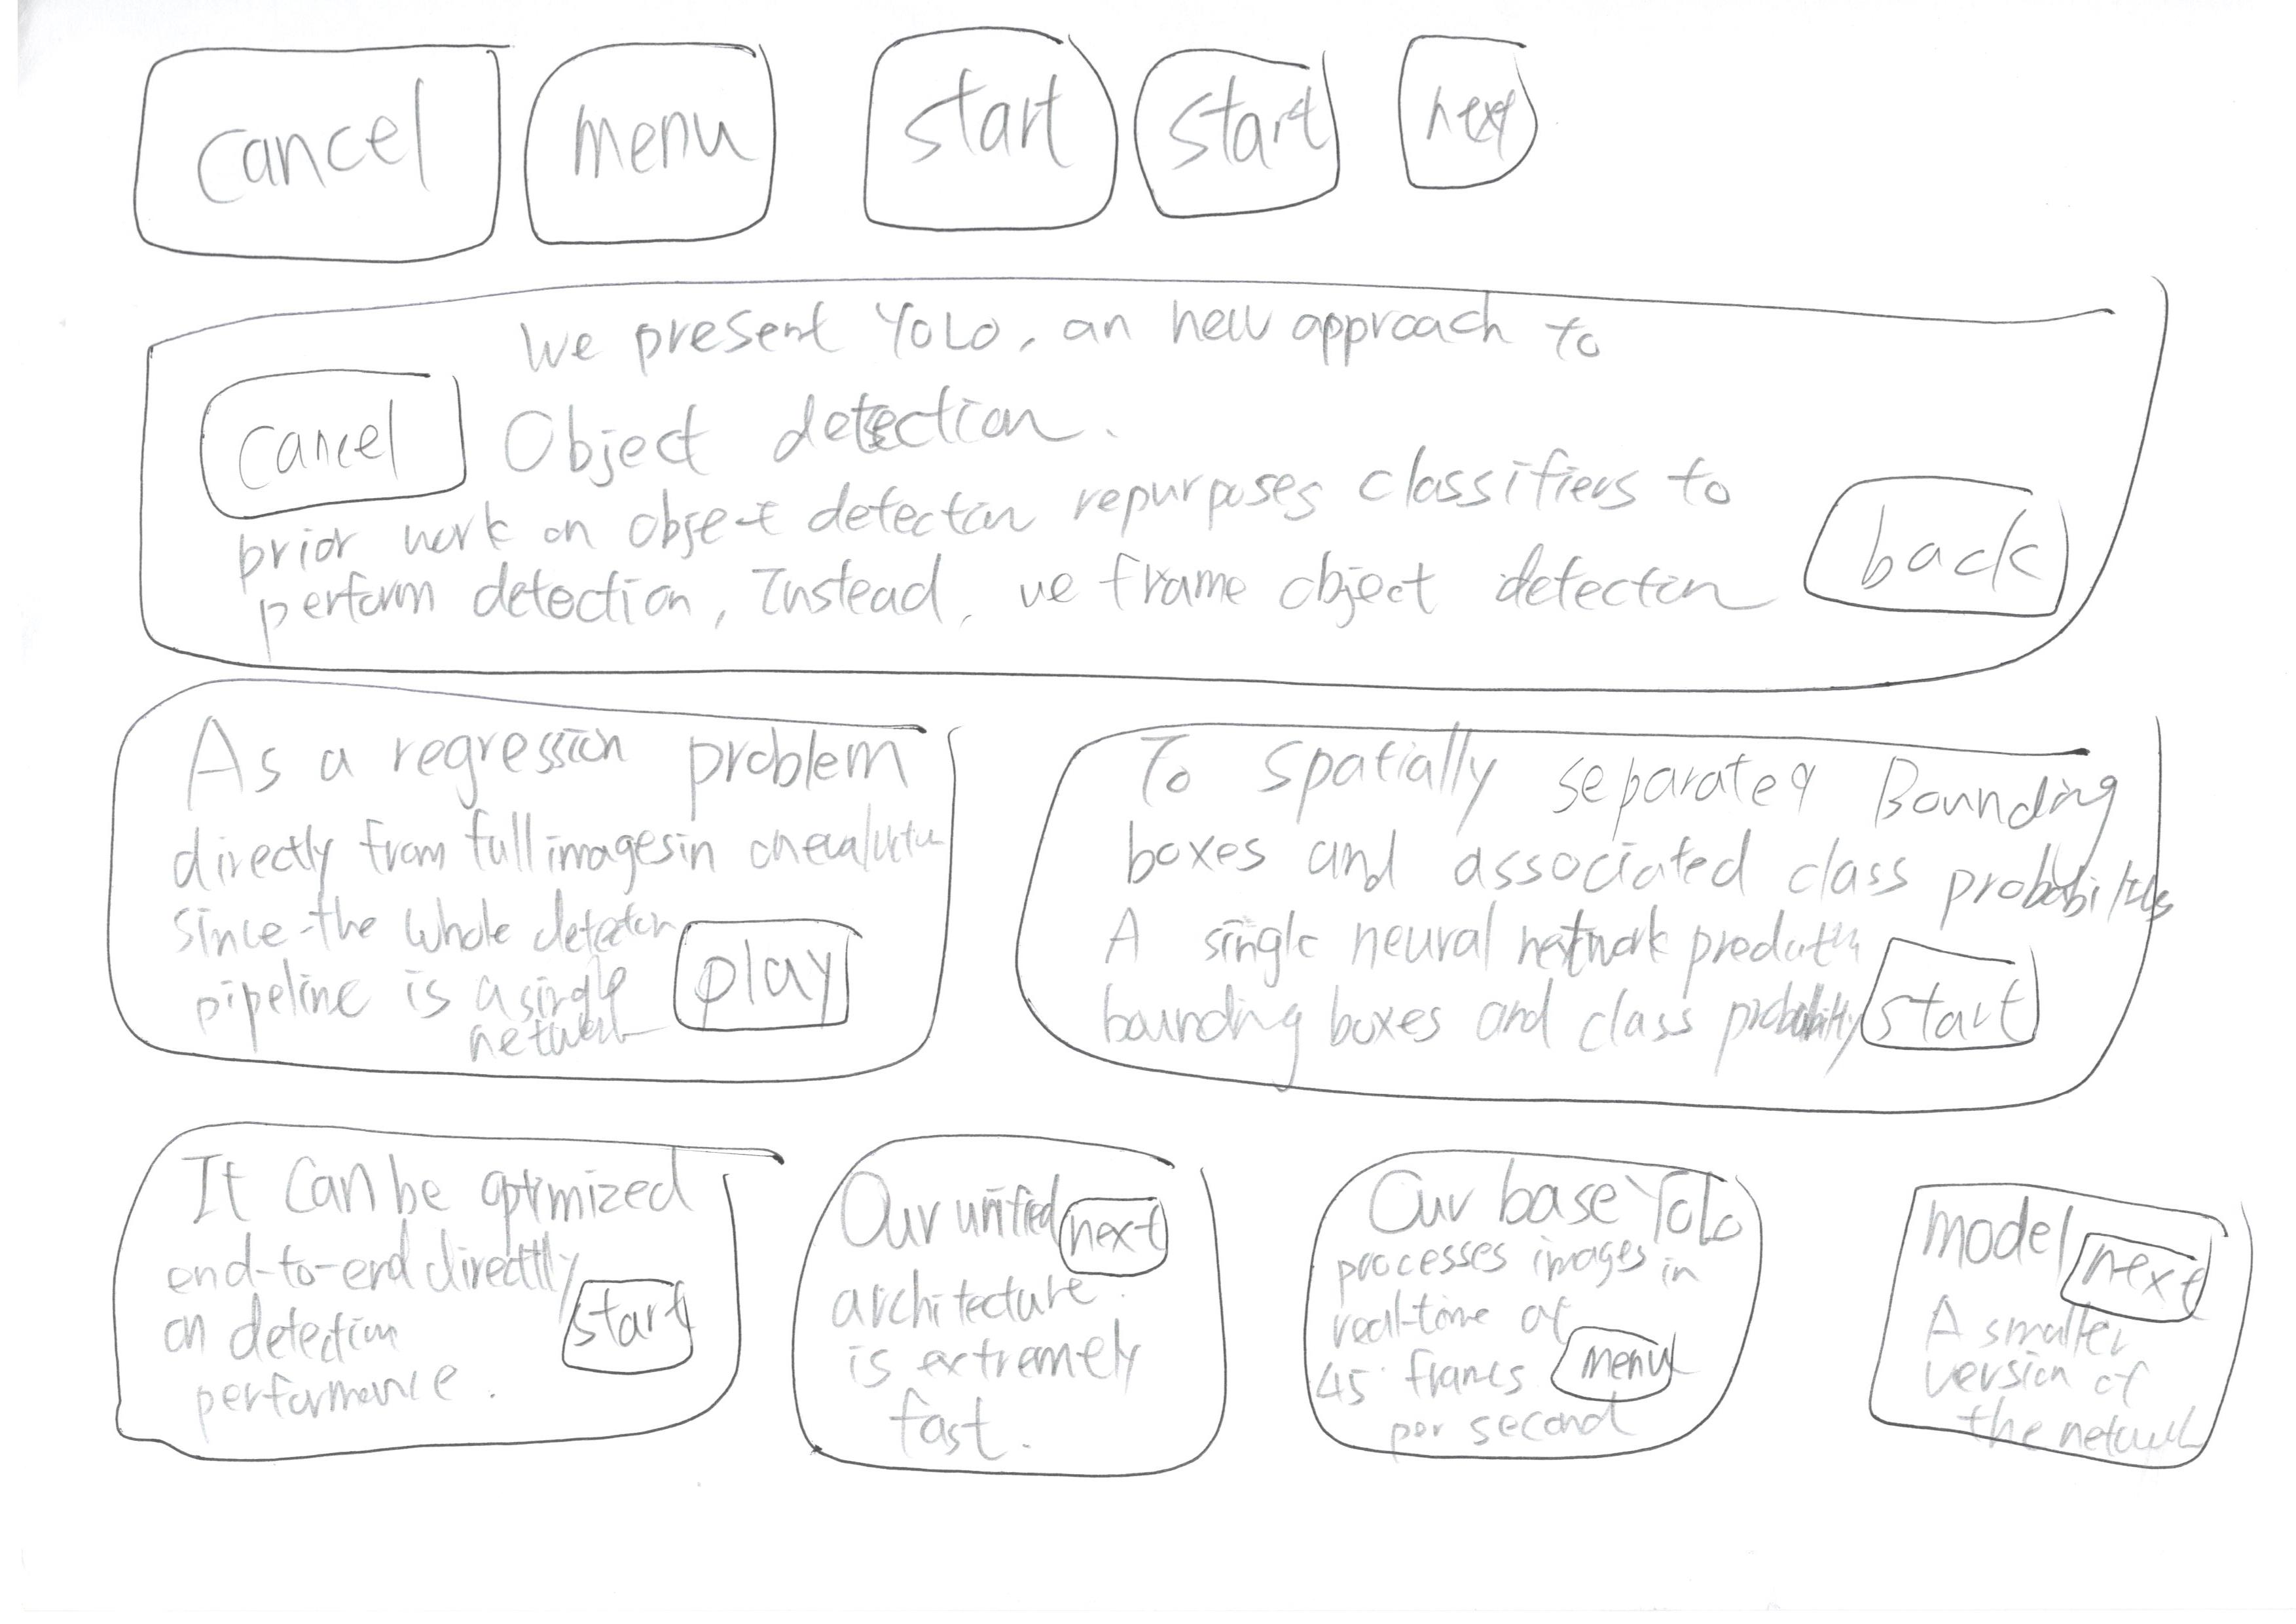 cancel menu start start next
We present YOLO, an new approach to
cancel Object detection.
prior work on object detection repurposes classifiers to
perform detection, Instead, we frame object detection back
As a regression problem
directly from full images in
since the whole detection
pipeline is a single play
network
To spatially separated Bounding
boxes and associated class probabilities
A single neural network
bounding boxes and class probability start
It can be optimized
end-to-end directly
on detection start
performance.
Our unified next
architecture.
is extremely
fast.
Our base YOLO
processes images in
real-time at
45 frames menu
per second
model next
A smaller
version of
the network